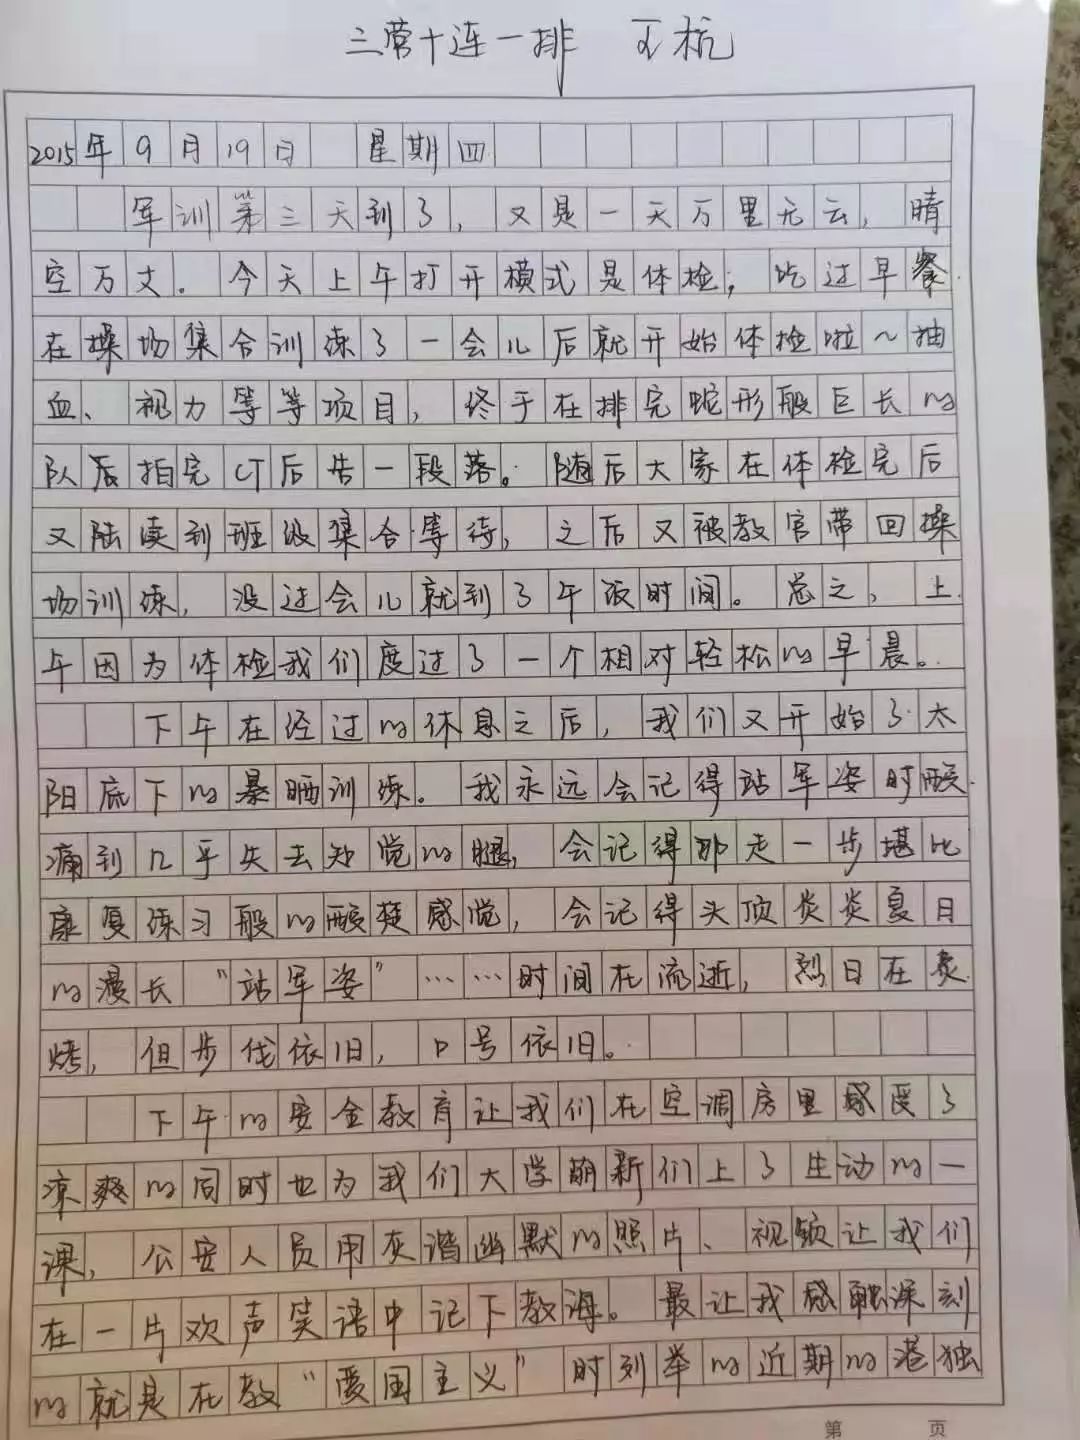 三营十连一排 王杭
2015年9月19日 星期四
军训第三天到了，又是一天万里无云，晴
空万丈。今天上午打开模式是体检，吃过早餐
在操场集合训练了一会儿后就开始体检啦～抽
血、视力等等项目，终于在排完蛇形般巨长的
队后拍完CT后告一段落。随后大家在体检完后
又陆续到班级集合等待，之后又被教官带回操
场训练，没过会儿就到了午饭时间。总之，上
午因为体检我们度过了一个相对轻松的早晨。
下午在经过的休息之后，我们又开始了太
阳底下的暴晒训练。我永远会记得站军姿时酸
痛到几乎失去知觉的腿，会记得那走一步堪比
康复练习般的酸楚感觉，会记得头顶炎炎夏日
的漫长“站军姿”……时间在流逝，烈日在炙
烤，但步伐依旧，口号依旧。
下午的安全教育让我们在空调房里感受了
凉爽的同时也为我们大学萌新们上了生动的一
课，公安人员用灰谐幽默的照片、视频让我们
在一片欢声笑语中记下教诲。最让我感触深刻
的就是在教“爱国主义”时列举的近期的港独
第 页